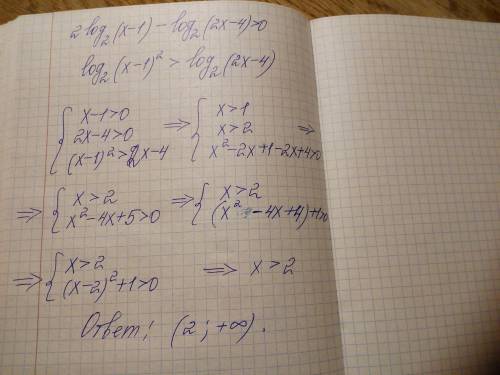 2log₂(x-1) - log₂(2x-4)>0
log₂(x-1)² > log₂(2x-4)
{ x-1>0 ⇒ { x>1
2x-4>0 x>2 ⇒
(x-1)²>2x-4 x²-2x+1-2x+4>0
⇒ { x>2 ⇒ { x>2
x²-4x+5>0 (x²-4x+4)+1>0
⇒ { x>2 ⇒ x>2
(x-2)²+1>0
Ответ: (2; +∞).